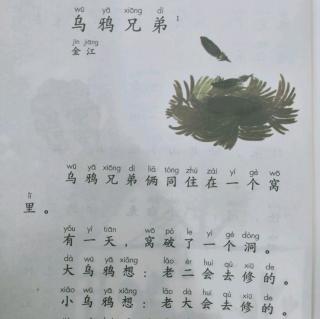 wū yā xiōng dì
乌鸦兄弟1
jīn jiāng
金江
wū yā xiōng dì liǎ tóng zhù zài yí gè wō
乌鸦兄弟俩同住在一个窝
lǐ
里。
yǒu yì tiān wō pò le yí gè dòng
有一天，窝破了一个洞。
dà wū yā xiǎng lǎo èr huì qù xiū de
大乌鸦想：老二会去修的。
xiǎo wū yā xiǎng lǎo dà huì qù xiū de
小乌鸦想：老大会去修的。